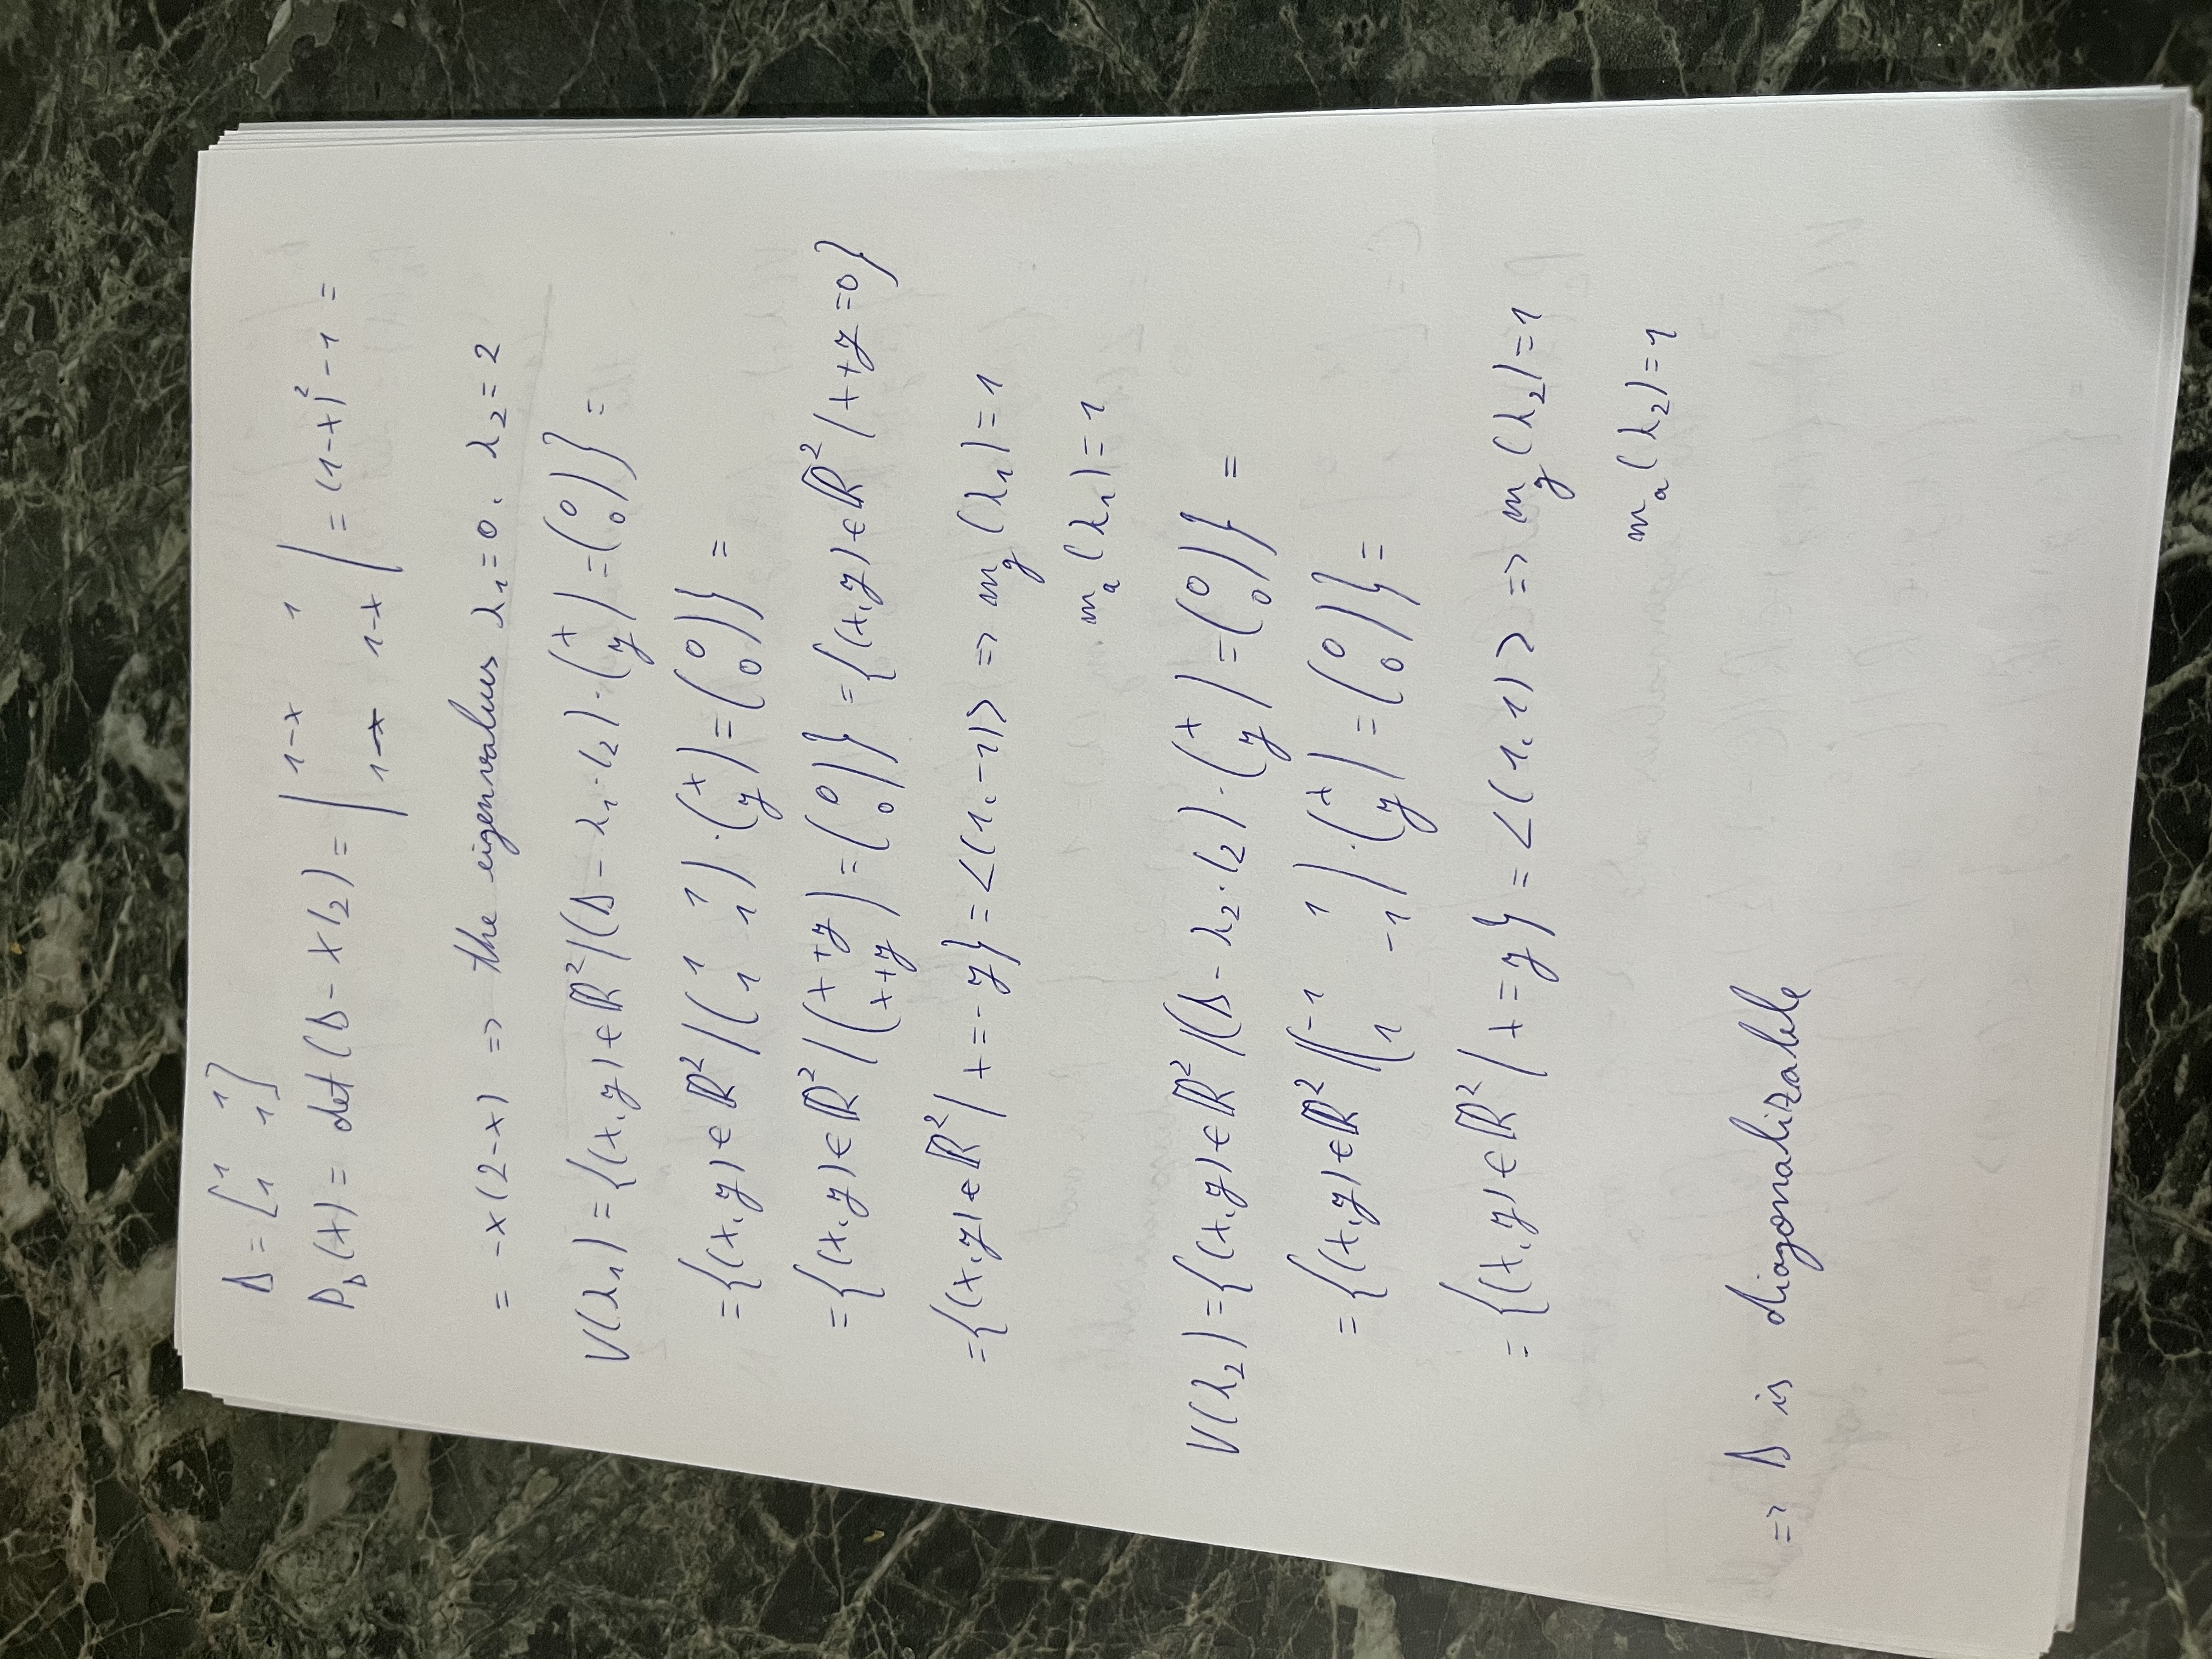 D = [1 1
1 1]
P_D(X) = det(D - X I₂) = | 1-x 1
1 1-x | = (1-x)² - 1 =
= -x(2-x) => the eigenvalues λ₁=0, λ₂=2
V(λ₁) = {(x,y)∈ℝ² / (D - λ₁·I₂)·(x y) = (0 0)} =
= {(x,y)∈ℝ² / (1 1
1 1)·(x y) = (0 0)} =
= {(x,y)∈ℝ² / (x+y
x+y) = (0 0)} = {(x,y)∈ℝ² / x+y=0}
= {(x,y)∈ℝ² / x=-y} = <(1,-1)> => m_g(λ₁)=1
m_a(λ₁)=1
V(λ₂) = {(x,y)∈ℝ² / (D - λ₂·I₂)·(x y) = (0 0)} =
= {(x,y)∈ℝ² / (-1 1
1 -1)·(x y) = (0 0)} =
= {(x,y)∈ℝ² / x=y} = <(1,1)> => m_g(λ₂)=1
m_a(λ₂)=1
=> D is diagonalizable